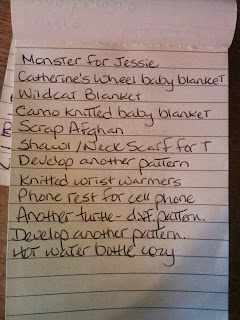 Monster for Jessie
Catherine's Wheel baby blanket
Wildcat Blanket
Camo knitted baby blanket
Scrap Afghan
Shawl / Neck Scarf for T
Develop another pattern
Knitted wrist warmers
Phone rest for cell phone
Another turtle - diff. pattern.
Develop another pattern.
Hot water bottle cozy